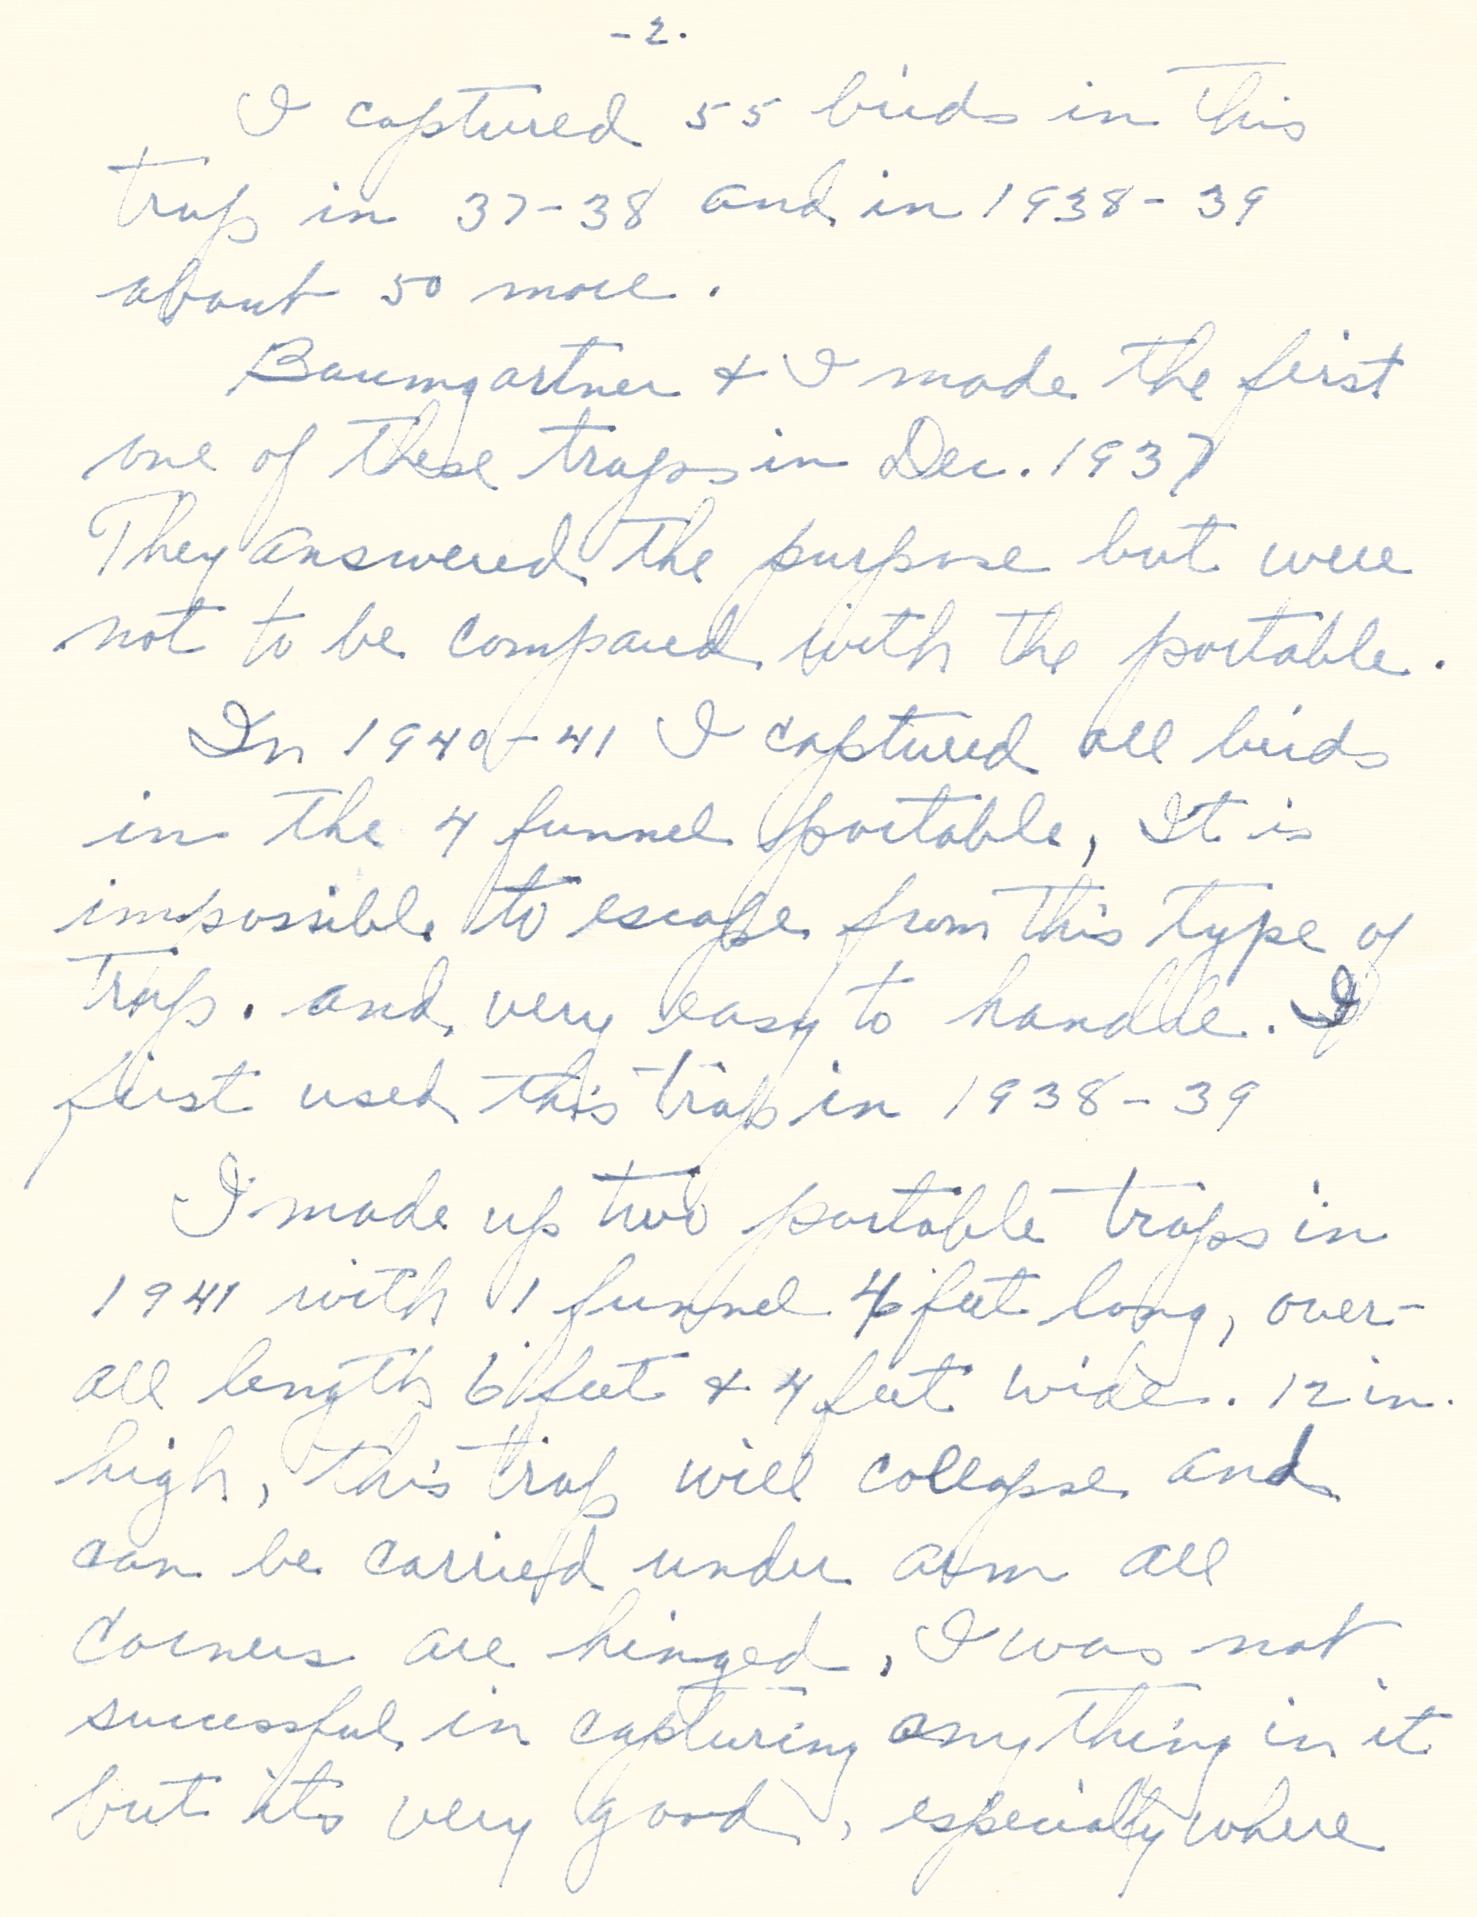 -2.
I captured 55 birds in this
trap in 37-38 and in 1938-39
about 50 more.
Baumgartner & I made the first
one of these traps in Dec. 1937
They answered the purpose but were
not to be compared with the portable.
In 1940-41 I captured all birds
in the 4 funnel portable, It is
impossible to escape from this type of
Trap. and very easy to handle. I
first used this trap in 1938-39
I made up two portable traps in
1941 with 1 funnel 4 feet long, over-
all length 6 feet & 4 feet wide. 12 in.
high, this trap will collapse and
can be carried under arm all
corners are hinged, I was not
successful in capturing anything in it
but its very good, especially where